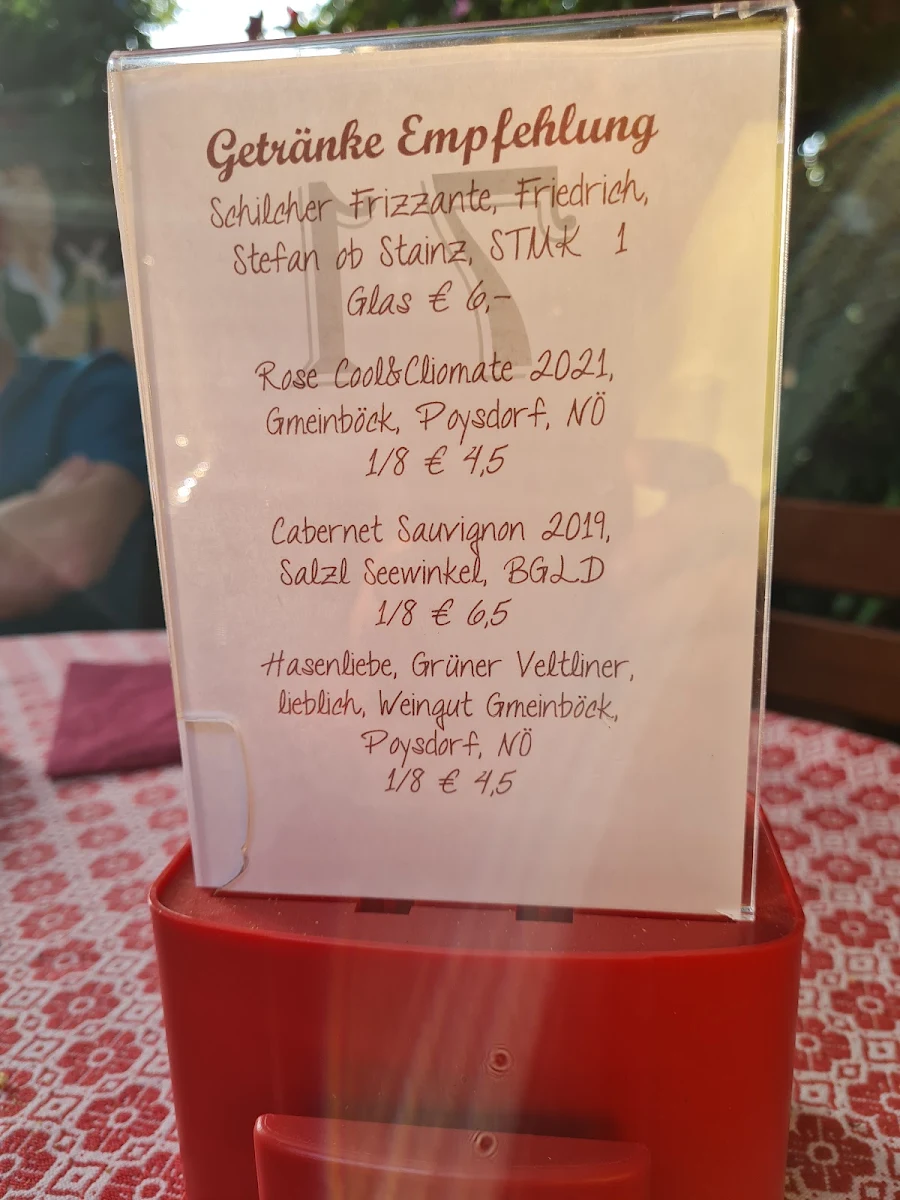 Getränke Empfehlung
Schilcher Frizzante, Friedrich,
Stefan ob Stainz, STMK 1
Glas € 6,-
Rose Cool&Cliomate 2021,
Gmeinböck, Poysdorf, NÖ
1/8 € 4,5
Cabernet Sauvignon 2019,
Salzl Seewinkel, BGLD
1/8 € 6,5
Hasenliebe, Grüner Veltliner,
lieblich, Weingut Gmeinböck,
Poysdorf, NÖ
1/8 € 4,5
17